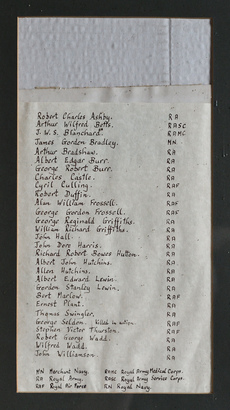 Robert Charles Ashby. RA
Arthur Wilfred Botts. RASC
J. W. S. Blanchard. RAMC
James Gordon Bradley. MN
Arthur Bradshaw. RA
Albert Edgar Burr. RA
George Robert Burr. RA
Charles Castle. RA
Cyril Culling. RAF
Robert Duffin. RA
Alan William Frossell. RAF
George Gordon Frossell. RAF
George Reginald Griffiths. RA
William Richard Griffiths. RA
John Hall. RA
John Dore Harris. RA
Richard Robert Bowes Hutton. RA
Albert John Hutchins. RA
Allen Hutchins. RA
Albert Edward Lewin. RA
Gordon Stanley Lewin. RA
Bert Marlow. RAF
Ernest Plant. RA
Thomas Swingler. RA
George Seldon. killed in action. RAF
Stephen Victor Thurston. RAF
Robert George Wadd. RA
Wilfred Wadd. RA
John Williamson RA
MN Merchant Navy. RAMC Royal Army Medical Corps.
RA Royal Army. RASC Royal Army Service Corps.
RAF Royal Air Force RN Royal Navy